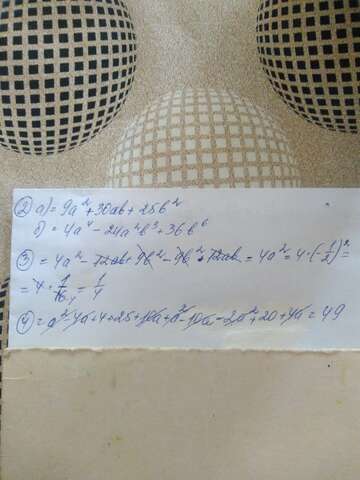 ② a) = 9a² + 30ab + 25b²
б) = 4a⁴ - 24a²b³ + 36b⁶
③ = 4a² - 12ab + 9b² - 9b² + 12ab = 4a² = 4 · (-1/2)² =
= 4 · 1/16 ₄ = 1/4
④ = a² - 4a + 4 + 25 + 10a + a² - 10a - 2a² + 20 + 4a = 49